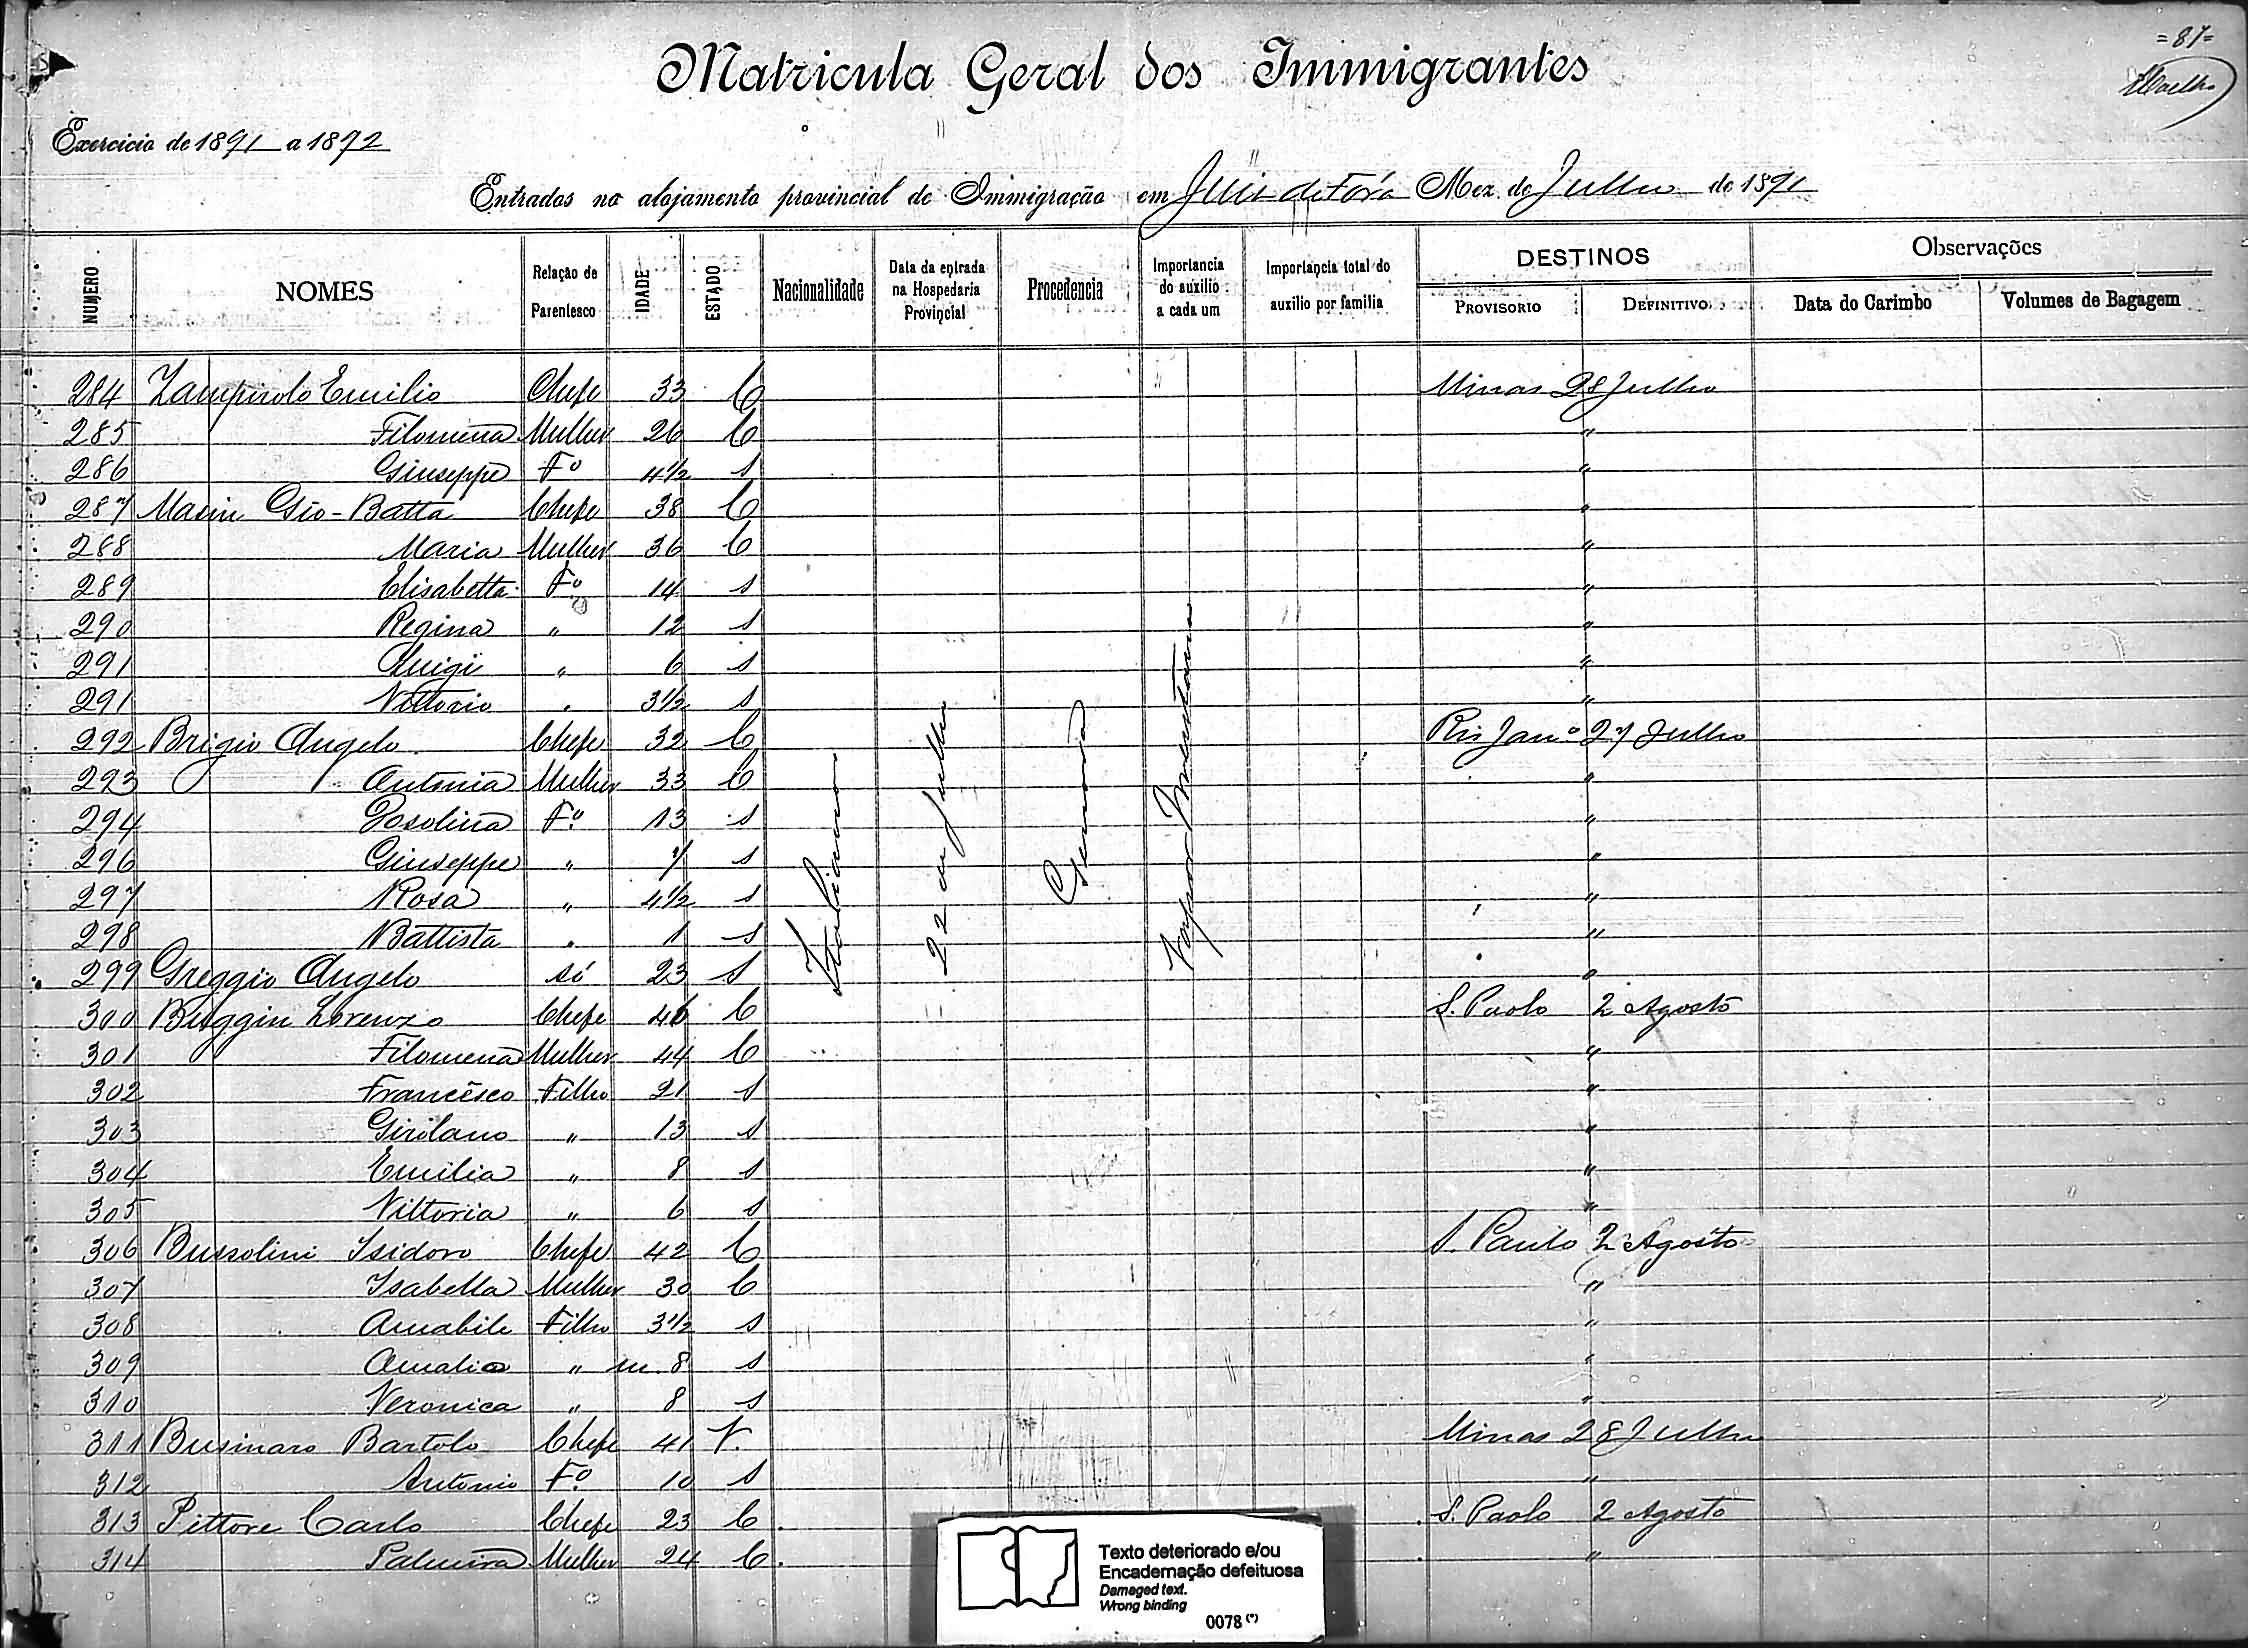 =87=
Matricula Geral dos Immigrantes
Exercicio de 1891 a 1892
Entrados no alojamento provincial de Immigração em Juiz de Fóra Mez de Julho de 1891
NUMERO NOMES Relação de Parentesco IDADE ESTADO Nacionalidade Data da entrada na Hospedaria Provincial Procedencia Importancia do auxilio a cada um Importancia total do auxilio por familia DESTINOS PROVISORIO DEFINITIVO Observações Data do Carimbo Volumes de Bagagem
284 Zampirolo Emilio Chefe 33 C Minas 28 Julho
285 Filomena Mulher 26 C "
286 Giuseppe Fº 4½ s "
287 Masin Gio-Batta Chefe 38 C "
288 Maria Mulher 36 C "
289 Elisabetta Fº 14 s "
290 Regina " 12 s "
291 Luigi " 6 s "
291 Vittorio " 3½ s "
292 Brigio Angelo Chefe 32 C Rio Janº 27 Julho
293 Antonia Mulher 33 C "
294 Fº 13 s "
296 Giuseppe " 7 s "
297 Rosa " 4½ s "
298 Battista " 1 s "
299 Greggio Angelo só 23 s "
300 Buggin Lorenzo Chefe 46 C S. Paolo 2 Agosto
301 Filomena Mulher 44 C "
302 Francesco Filho 21 s "
303 Girolano " 13 s "
304 Emilia " 8 s "
305 Vittoria " 6 s "
306 Bussolini Isidoro Chefe 42 C S. Paulo 2 Agosto
307 Isabella Mulher 30 C "
308 Amabile Filho 3½ s "
309 Amalia " m. 8 s "
310 Veronica " 8 s "
311 Businaro Bartolo Chefe 41 V. Minas 28 Julho
312 Antonio Fº 10 s "
313 Pittore Carlo Chefe 23 C. S. Paolo 2 Agosto
314 Palmira Mulher 24 C. "
Italiano
22 de Julho
Genova
Vapor
Texto deteriorado e/ou
Encadernação defeituosa
Damaged text.
Wrong binding
0078 (*)